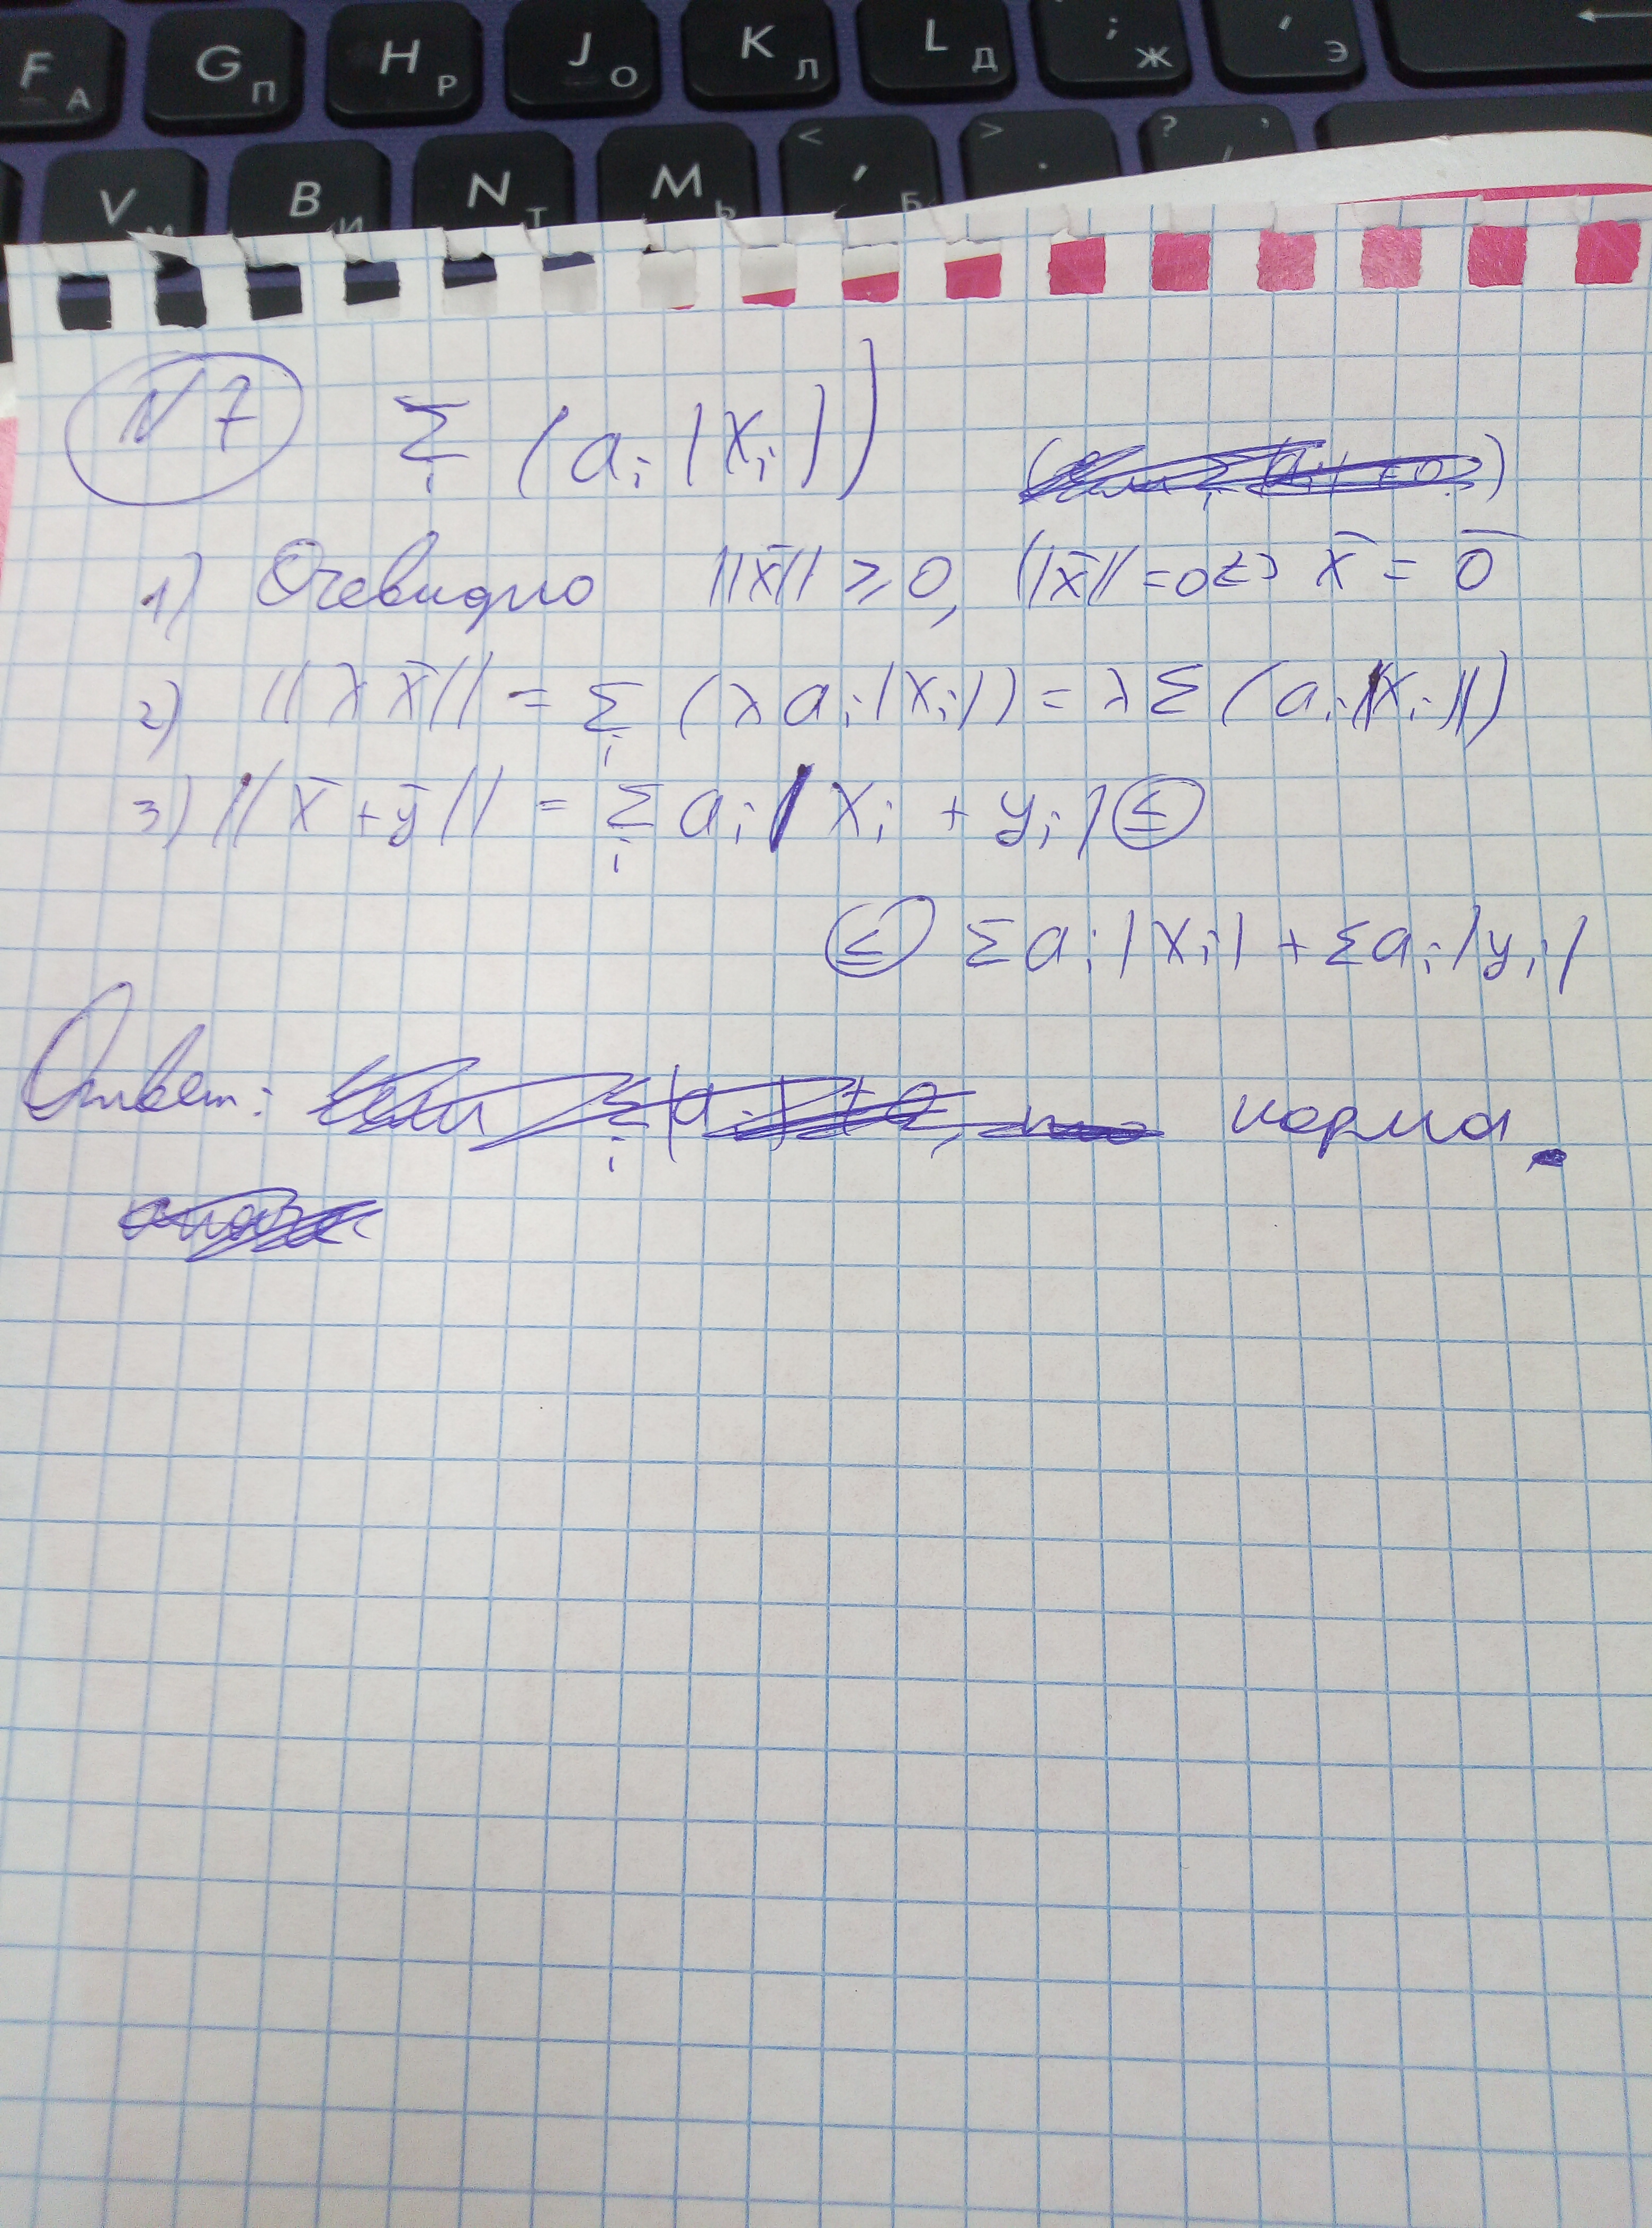 F А G П H Р J О K Л L Д ; Ж ' Э
V М B И N Т M Ь < , Б > . ? , /
N7 Σ i (a i |x i |)
1) Очевидно ||x̄|| ≥ 0, ||x̄|| = 0 <=> x̄ = 0̄
2) ||λx̄|| = Σ i (λ a i |x i |) = λ Σ (a i |x i |)
3) ||x̄ + ȳ|| = Σ i a i |x i + y i | ≤
≤ Σ a i |x i | + Σ a i |y i |
Ответ: норма.